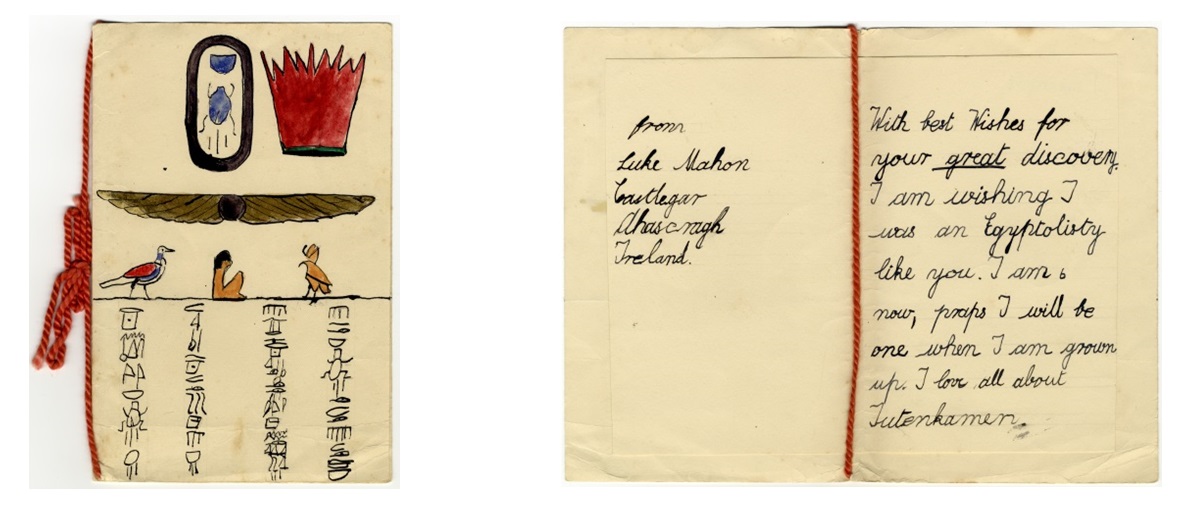 from
Luke Mahon
Castlegar
Ahascragh
Ireland.
With best Wishes for
your great discovery.
I am wishing I
was an Egyptolisty
like you. I am 6
now, praps I will be
one when I am grown
up. I love all about
Tutenkamen.